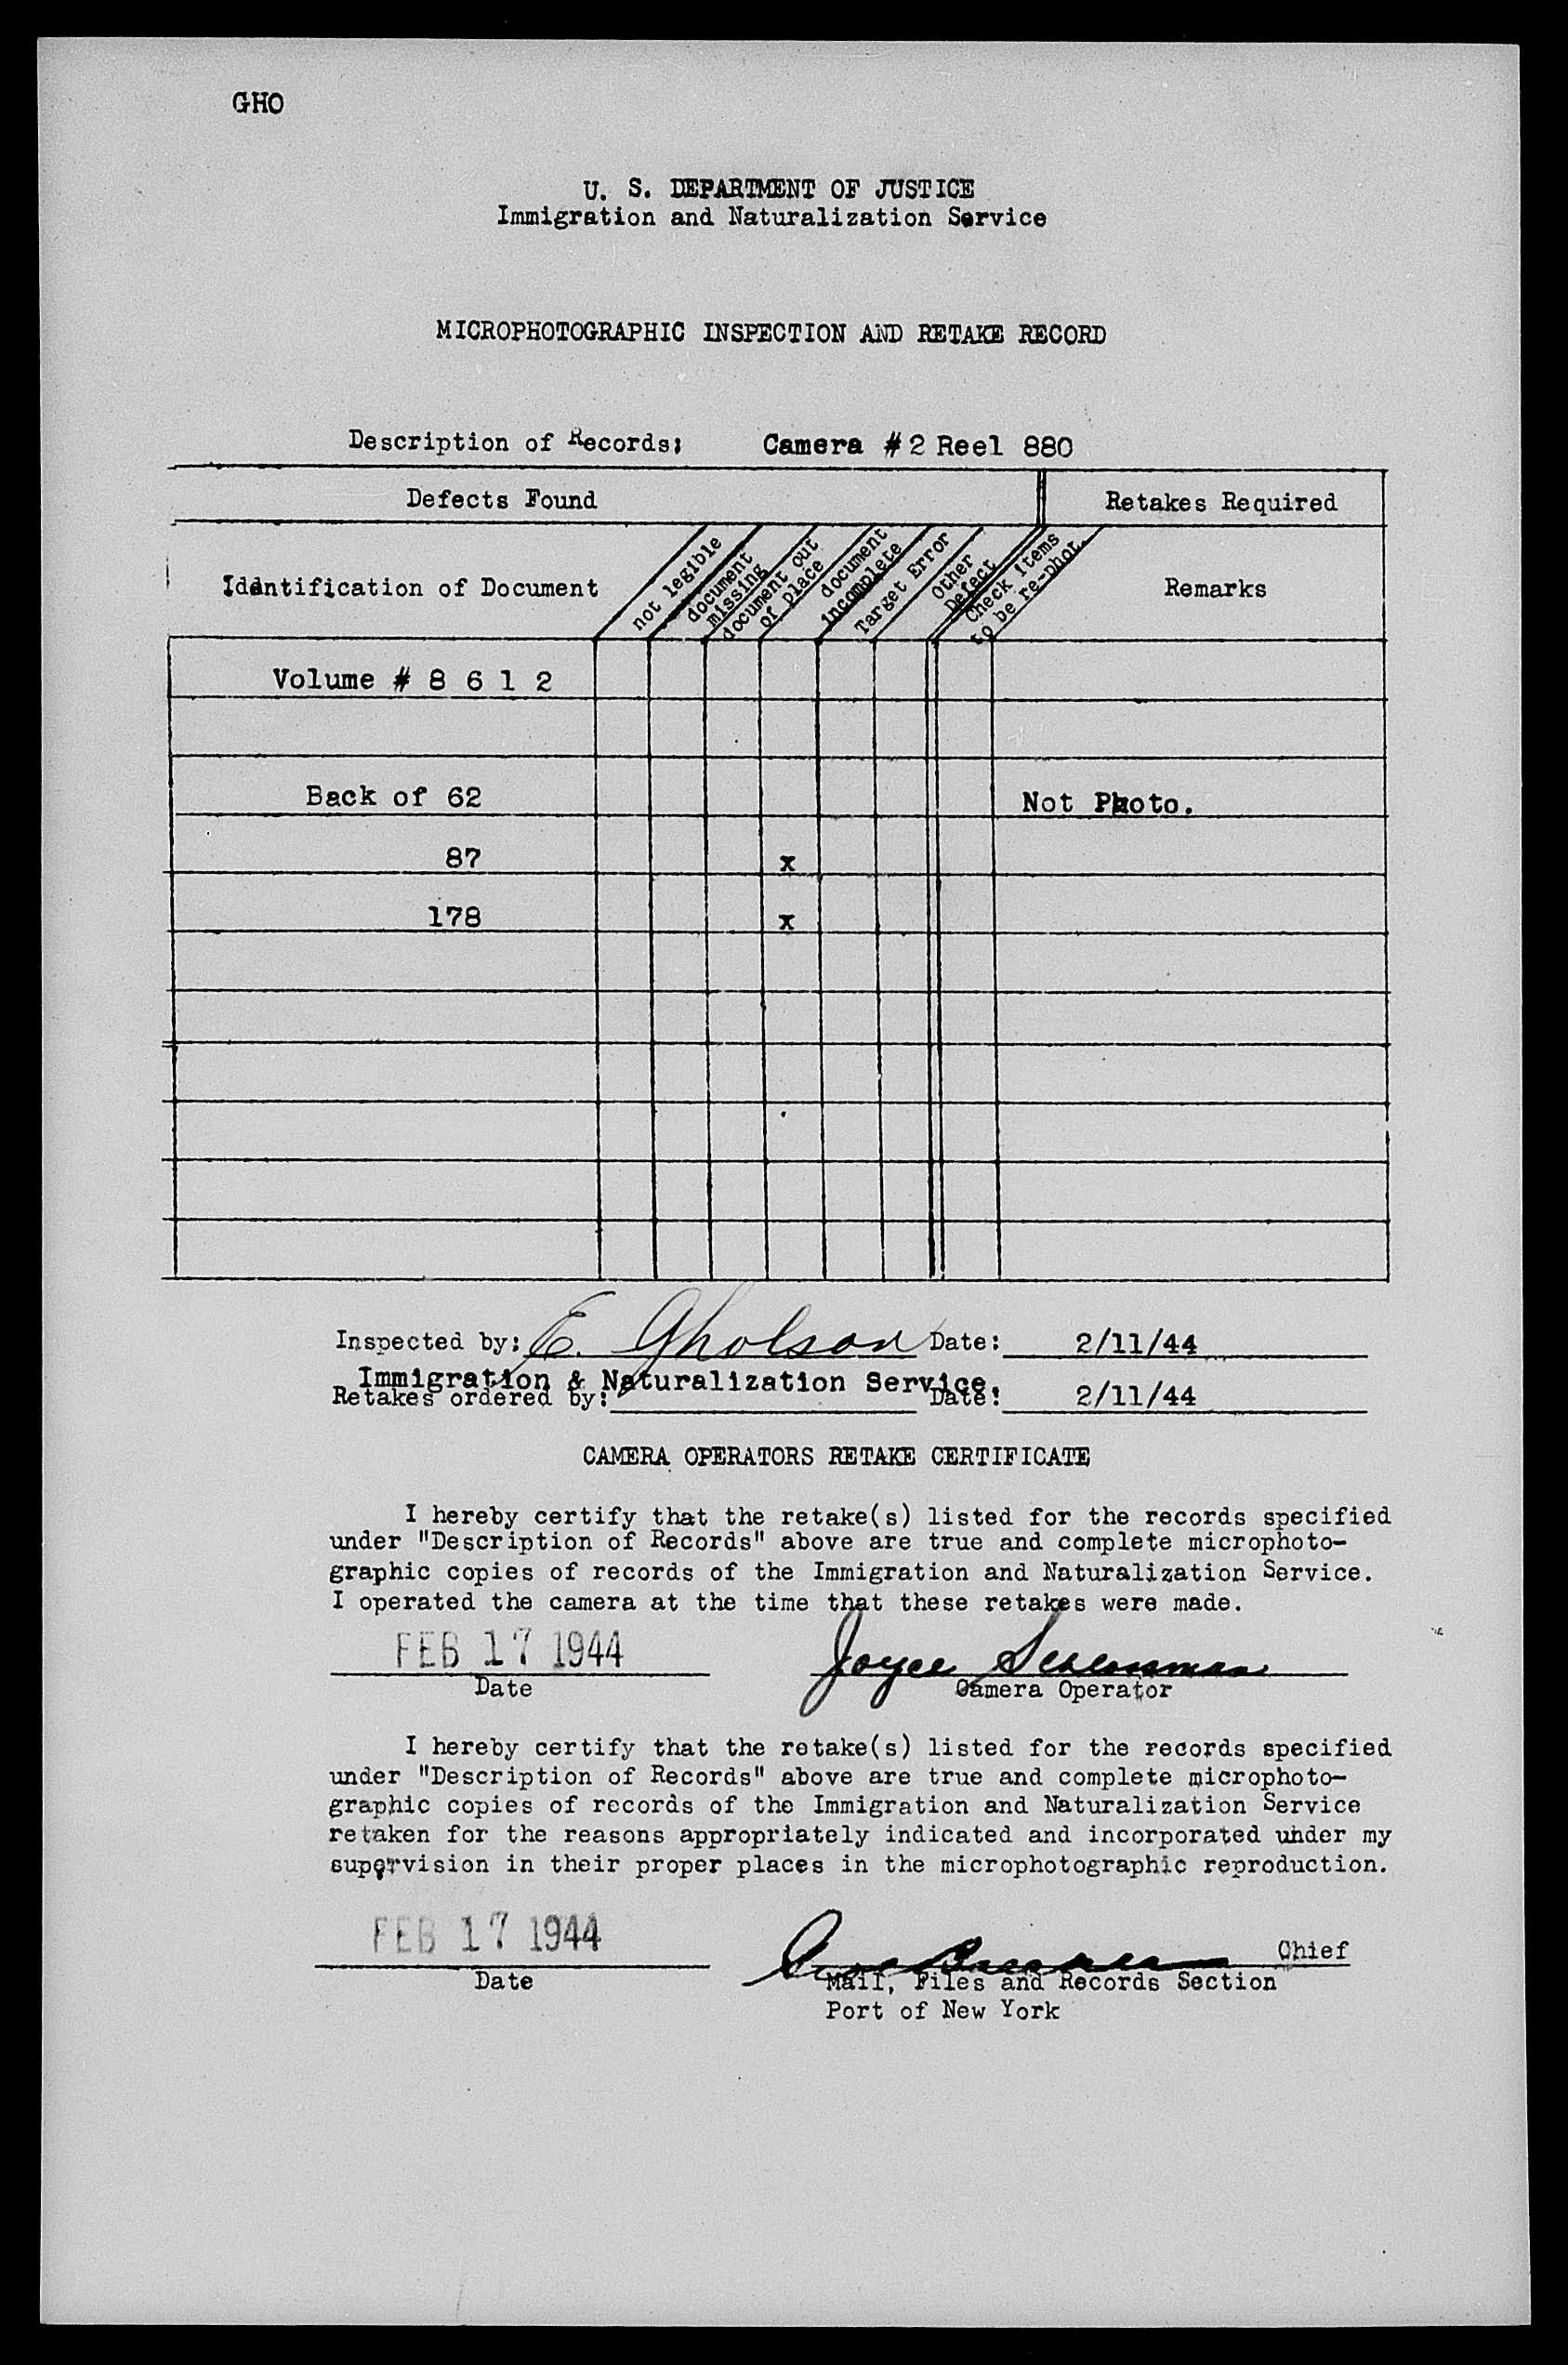 GHO
U. S. DEPARTMENT OF JUSTICE
Immigration and Naturalization Service
MICROPHOTOGRAPHIC INSPECTION AND RETAKE RECORD
Description of Records: Camera # 2 Reel 880
Defects Found Retakes Required
Identification of Document
not legible
document missing
document out of place
document incomplete
Target Error
Other Defect
Check items to be re-phot.
Remarks
Volume # 8 6 1 2
Back of 62 Not Photo.
87 x
178 x
Inspected by: E. Gholson Date: 2/11/44
Immigration & Naturalization Service.
Retakes ordered by: Date: 2/11/44
CAMERA OPERATORS RETAKE CERTIFICATE
I hereby certify that the retake(s) listed for the records specified
under "Description of Records" above are true and complete microphoto-
graphic copies of records of the Immigration and Naturalization Service.
I operated the camera at the time that these retakes were made.
FEB 17 1944 Joyce
Date Camera Operator
I hereby certify that the retake(s) listed for the records specified
under "Description of Records" above are true and complete microphoto-
graphic copies of records of the Immigration and Naturalization Service
retaken for the reasons appropriately indicated and incorporated under my
supervision in their proper places in the microphotographic reproduction.
FEB 17 1944 Chief
Date Mail, Files and Records Section
Port of New York